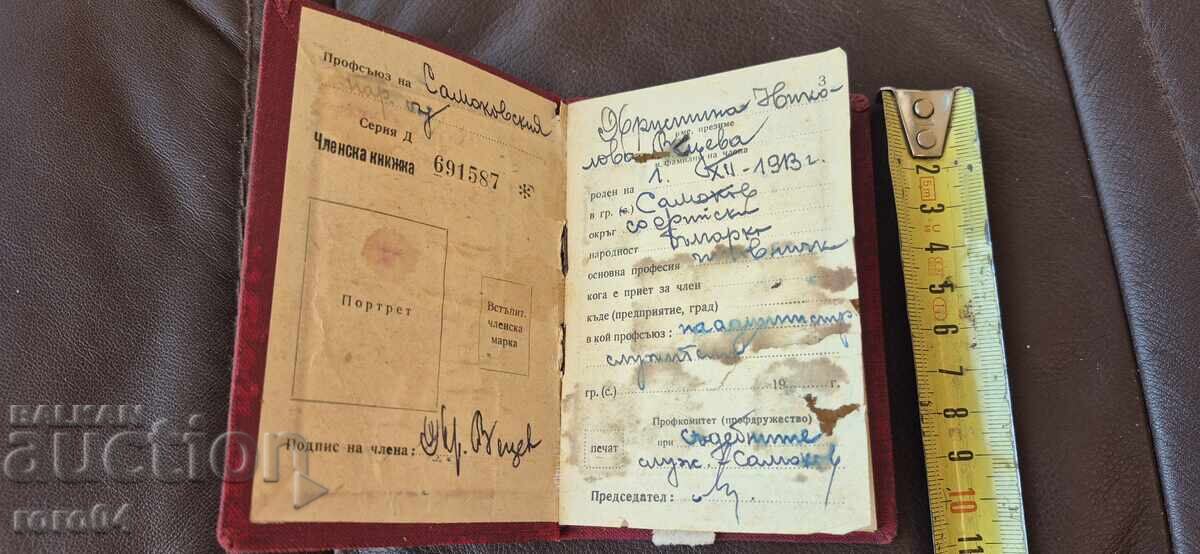 Профсъюз на Самоковския
нар. съд
Серия Д
Членска книжка 691587 *
Портрет
Встъпит.
членска
марка
Подпис на члена: Хр. Вецев
3
Христина Нико-
име, презиме
лова
и фамилия на члена
роден на 1. XII-1913 г.
в гр. (с.) Самоков
окръг софийски
народност българк
основна професия чиновничк
кога е приет за член
къде (предприятие, град)
в кой профсъюз: на администр
служители
гр. (с.) 19 г.
Профкомитет (профдружество)
печат
при съдебните
служ. Самоков
Председател:
BALKAN
auction
roro64
2
3
4
5
6
7
8
9
10
5m